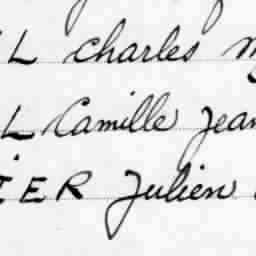 L Charles
L Camille Jean
IER Julien